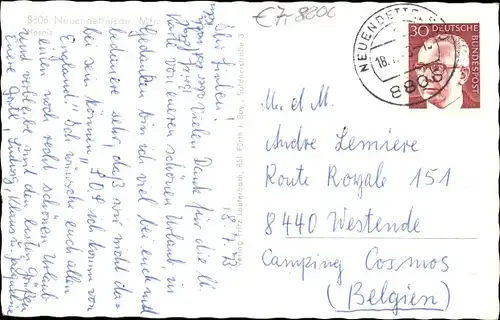 8806 Neuendettelsau Mfr.
Hospiz
€ 7,- 8806
18.7.73
Ihr Lieben!
Vielen Dank für die
Karte von eurem schönen Urlaub, in
Gedanken bin ich viel bei euch und
bedauere sehr, daß wir nicht da-
bei sein können, ich komm von
England. Ich wünsche euch allen
noch recht schönen Urlaub
und verbleibe mit den Grüßen
Eure
Verlag Fritz Lauterbach, 851 Fürth i. Bay.
NEUENDETTELSAU
18.
8806
30 DEUTSCHE
BUNDESPOST
M. et M.
Andre Lemiere
Route Royale 151
8440 Westende
Camping Cosmos
(Belgien)